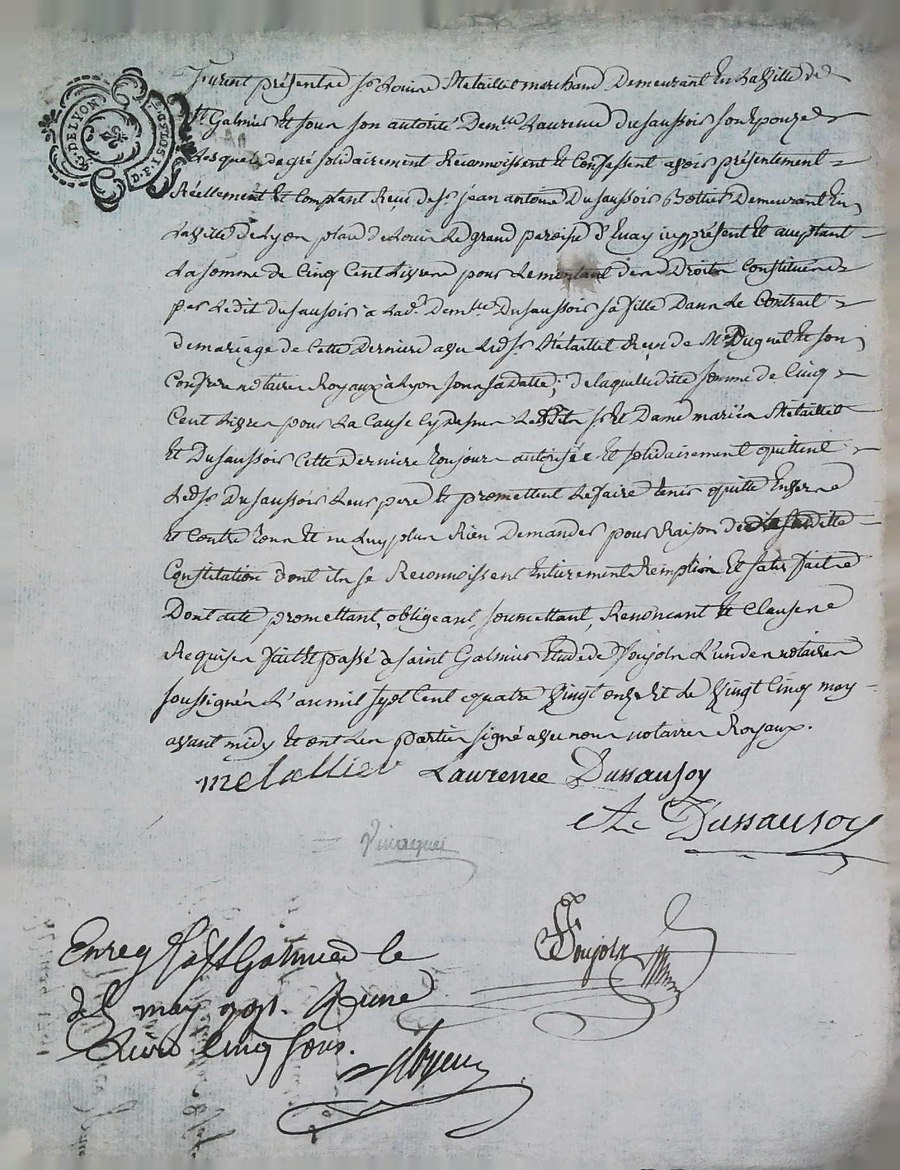 G. DE LYON
D. F. I SOLS. D.
Furent présentre sr. Louire Metaillet marchand Demeurant En La Ville de
St Galmier Et sour son autorité Demlle Laurence Dusaussois son Epouze
Lesquels de gré solidairement Reconnoissent Et Confessent avoir présentement
Réellement Et Comptant Reçu de sr. jean antoine Dusaussois Demeurant En
La Ville de Lyon place de Louir Le grand paroisse d'Enay icy présent Et aceptant
La somme de Cinq Cent Livres pour Le montant der Droitr Constituér
par Ledit Dusaussois à Lad. Demlle Dusaussois sa fille Danr Le Contrait
de mariage de Cette Derniere avec Led sr. Metaillet Reçu de Me Duguet Et son
Confrere notaires Royaux à Lyon sour sa datte; de laquelle ditte somme de Cinq
Cent Livres pour La Cause Cy desur Lesdits sr. Et Dame mariér Metaillet
Et Dusaussois Cette Derniere toujours autorisée Et solidairement quittent
Led sr. Dusaussois Leur pere Et promettent Le faire tenir quitte Enverr
Et Contre tour Et ne Luy plur Rien Demander pour Raison de La susditte
Constitution dont ilr se Reconnoissent Entierement Remplir Et satisfaitr
Dont acte promettant, obligeant, soumettant, Renoncant Et Clauser
Requiser fait Et passé à saint Galmier Etude de Soujoln L'un der notairer
soussignér L'an mil sept Cent quatre Vingt onze Et Le Vingt Cinq may
avant midy Et ont Ler partier signé avec nour notairer Royaux.
metallier Laurence Dussausoy
Dussausoy
Soujoln
Enreg. à St Galmier le
25 may 1791. Reçu une
Livre cinq sous.